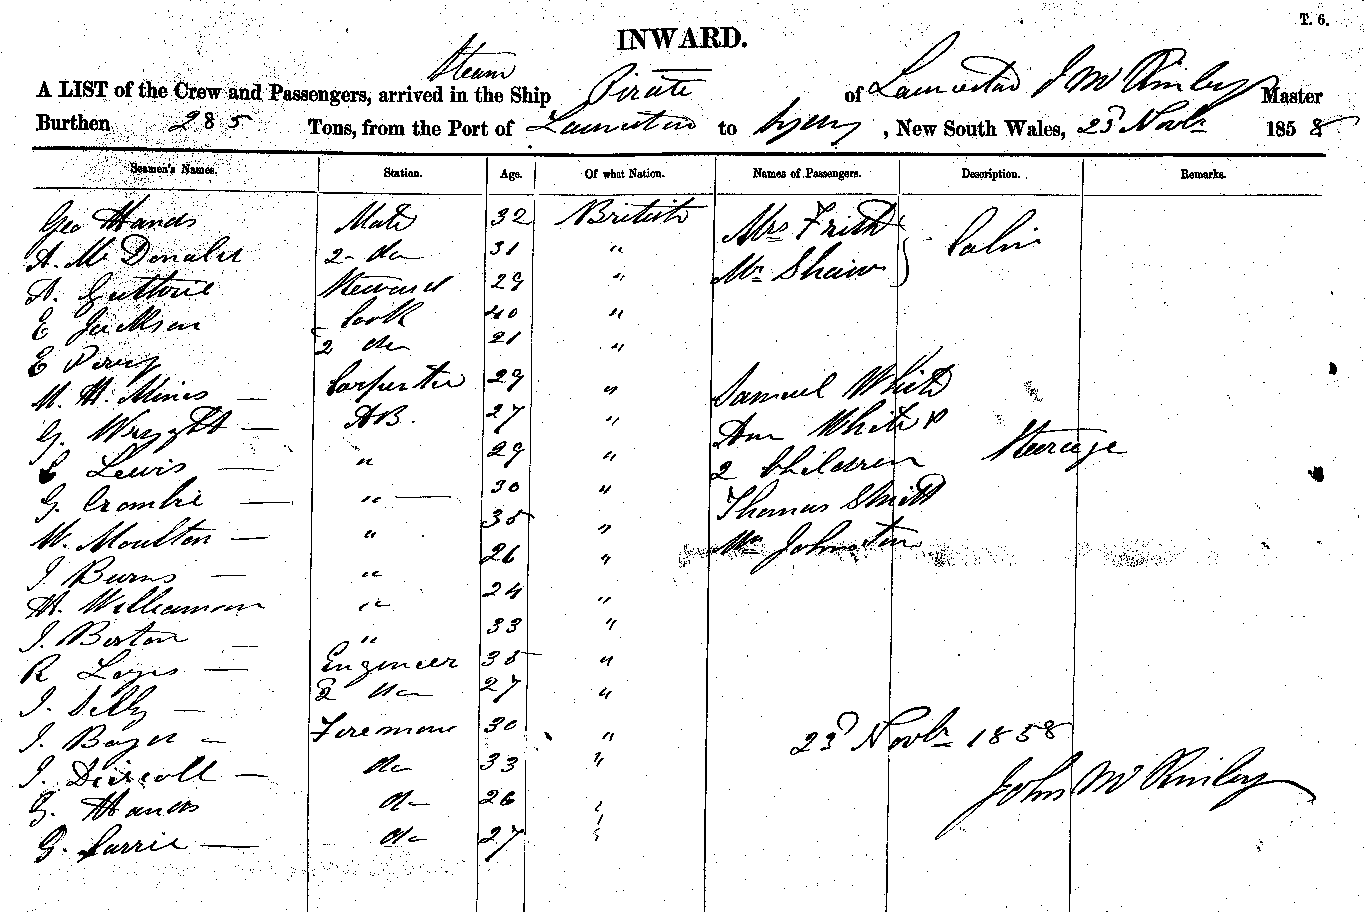 T. 6.
INWARD.
Steam
A LIST of the Crew and Passengers, arrived in the Ship Pirate of Launceston J McKinley Master
Burthen 285 Tons, from the Port of Launceston to Sydney, New South Wales, 23 Novbr 1858
Seamen's Names. Station. Age. Of what Nation. Names of Passengers. Description. Remarks.
Geo Hands Mate 32 British Mrs Frith Cabin
A. McDonald 2 do 31 " Mr Shaw
A. Guthrie Steward 29 "
E Jackson Cook 40 "
E Percy 2 do 21 "
Carpenter 29 " Samuel White
G. Wright — AB. 27 " Ann White
C Lewis — " 29 " 2 Children Steerage
G. Crombie — " — 30 " Thomas Smith
W. Moulton — " 35 " Johnston
J Burns — " 26 "
H. Williamson " 24 "
J. Barton — " 33 "
R — Engineer 35 "
J. — 2 do 27 "
J. — Fireman 30 " 23 Novbr 1858
J. Driscoll — do 33 "
G. Hands do 26 " John McKinley
G. Carrie — do 27 "